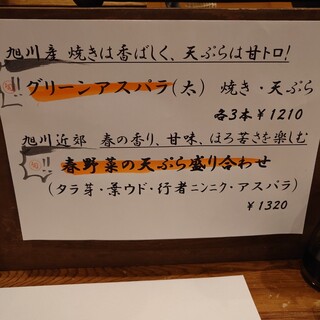 旭川産 焼きは香ばしく、天ぷらは甘トロ!
グリーンアスパラ(太) 焼き・天ぷら
各3本¥1210
旭川近郊 春の香り、甘味、ほろ苦さを楽しむ
春野菜の天ぷら盛り合わせ
(タラ芽・葉ウド・行者ニンニク・アスパラ)
¥1320